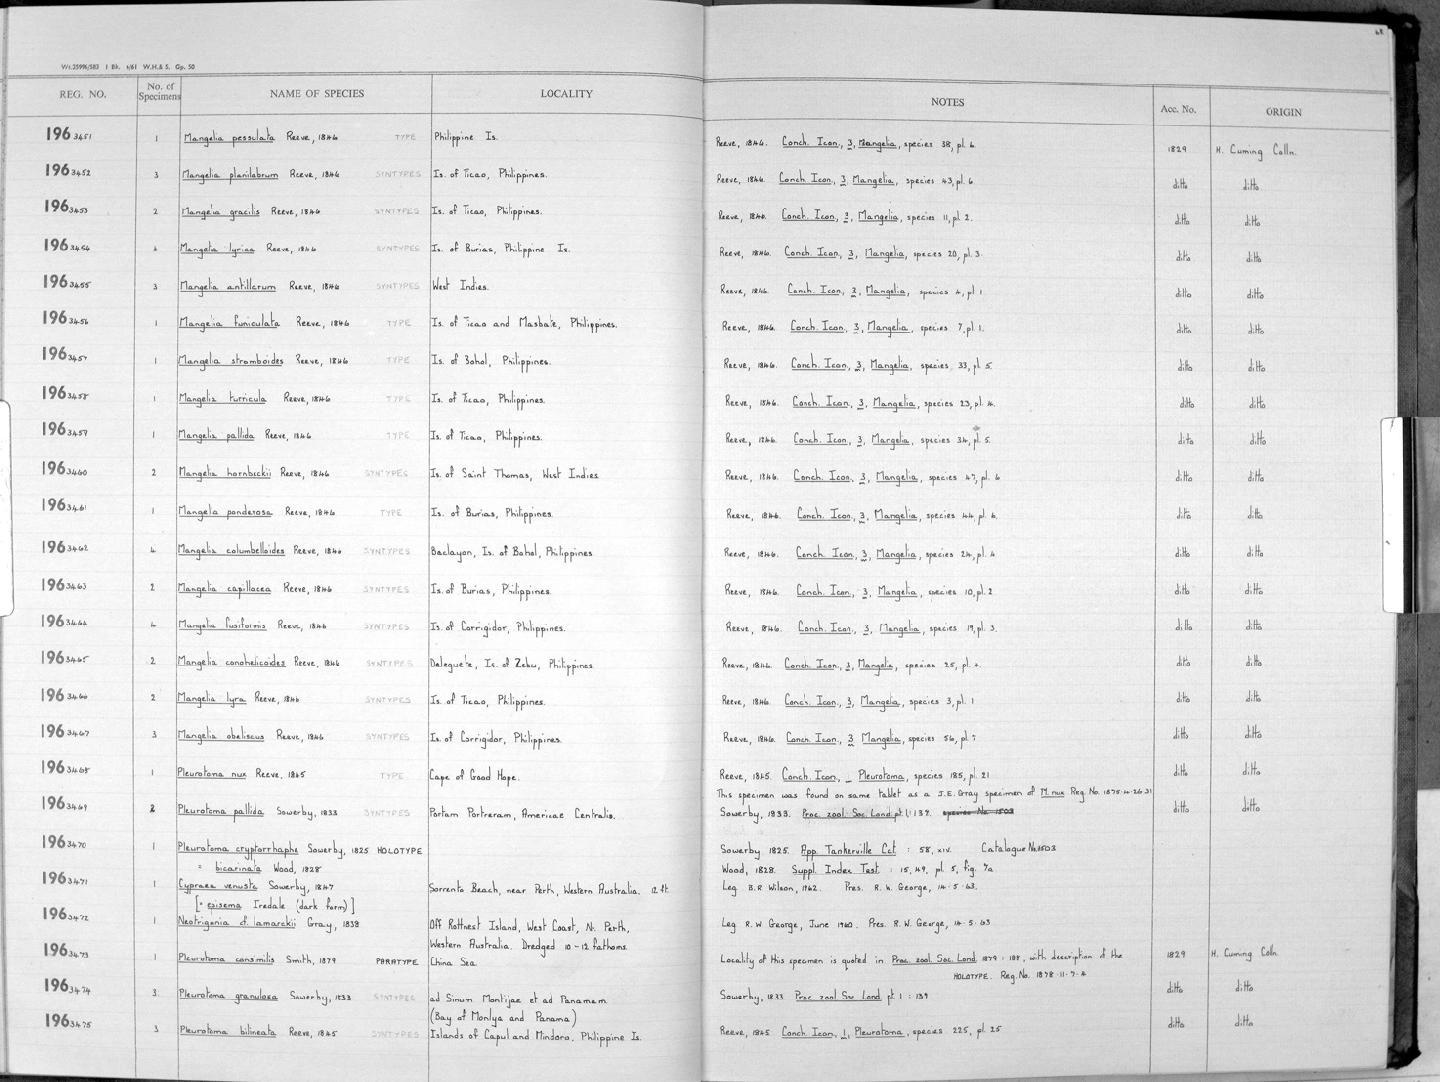 68
Wt.25996/583 1 Bk. 6/61 W.H.& S. Gp. 50
REG. NO. No. of Specimens NAME OF SPECIES LOCALITY NOTES Acc. No. ORIGIN
1963451 1 Mangelia pessulata Reeve, 1846 TYPE Philippine Is. Reeve, 1846. Conch. Icon., 3, Mangelia, species 38, pl. 6. 1829 H. Cuming Colln.
1963452 3 Mangelia planilabrum Reeve, 1846 SYNTYPES Is. of Ticao, Philippines. Reeve, 1846. Conch. Icon., 3 Mangelia, species 43, pl. 6. ditto ditto
1963453 2 Mangelia gracilis Reeve, 1846 SYNTYPES Is. of Ticao, Philippines. Reeve, 1846. Conch. Icon., 3, Mangelia, species 11, pl. 2. ditto ditto
1963454 4 Mangelia lyrica Reeve, 1846 SYNTYPES Is. of Burias, Philippine Is. Reeve, 1846. Conch. Icon., 3, Mangelia, species 20, pl. 3. ditto ditto
1963455 3 Mangelia antillarum Reeve, 1846 SYNTYPES West Indies. Reeve, 1846. Conch. Icon., 3, Mangelia, species 4, pl 1 ditto ditto
1963456 1 Mangelia funiculata Reeve, 1846 TYPE Is. of Ticao and Masbate, Philippines. Reeve, 1846. Conch. Icon., 3, Mangelia, species 7, pl. 1. ditto ditto
1963457 1 Mangelia stromboides Reeve, 1846 TYPE Is. of Bohol, Philippines. Reeve, 1846. Conch. Icon., 3, Mangelia, species 33, pl 5. ditto ditto
1963458 1 Mangelia turricula Reeve, 1846 TYPE Is. of Ticao, Philippines. Reeve, 1846. Conch. Icon., 3, Mangelia, species 23, pl. 4. ditto ditto
1963459 1 Mangelia pallida Reeve, 1846 TYPE Is. of Ticao, Philippines. Reeve, 1846. Conch. Icon., 3, Mangelia, species 34, pl. 5. ditto ditto
1963460 2 Mangelia hornbeckii Reeve, 1846 SYNTYPES Is. of Saint Thomas, West Indies Reeve, 1846. Conch. Icon., 3, Mangelia, species 47, pl. 6 ditto ditto
1963461 1 Mangelia ponderosa Reeve, 1846 TYPE Is. of Burias, Philippines. Reeve, 1846. Conch. Icon., 3, Mangelia, species 44 pl. 6. ditto ditto
1963462 4 Mangelia columbelloides Reeve, 1846 SYNTYPES Baclayon, Is. of Bohol, Philippines Reeve, 1846. Conch. Icon., 3, Mangelia, species 24, pl. 4 ditto ditto
1963463 2 Mangelia capillacea Reeve, 1846 SYNTYPES Is. of Burias, Philippines. Reeve, 1846. Conch. Icon., 3, Mangelia, species 10, pl. 2 ditto ditto
1963464 4 Mangelia fusiformis Reeve, 1846 SYNTYPES Is. of Corrigidor, Philippines. Reeve, 1846. Conch. Icon., 3, Mangelia, species 19, pl. 3. ditto ditto
1963465 2 Mangelia conohelicoides Reeve, 1846 SYNTYPES Daleguete, Is. of Zebu, Philippines Reeve, 1846. Conch. Icon., 3, Mangelia, species 25, pl. 4. ditto ditto
1963466 2 Mangelia lyra Reeve, 1846 SYNTYPES Is. of Ticao, Philippines. Reeve, 1846. Conch. Icon., 3, Mangelia, species 3, pl. 1 ditto ditto
1963467 3 Mangelia obeliscus Reeve, 1846 SYNTYPES Is. of Corrigidor, Philippines. Reeve, 1846. Conch. Icon., 3 Mangelia, species 56, pl. ditto ditto
1963468 1 Pleurotoma nux Reeve, 1845 TYPE Cape of Good Hope. Reeve, 1845. Conch. Icon., Pleurotoma, species 185, pl. 21 ditto ditto
This specimen was found on same tablet as a J.E. Gray specimen of M. nux Reg. No. 1875.4.26.31
1963469 2 Pleurotoma pallida Sowerby, 1833 SYNTYPES Portam Portreram, Americae Centralis. Sowerby, 1833. Proc. zool. Soc. Lond. pt. 1: 137. species No. 1503 ditto ditto
1963470 1 Pleurotoma cryptorrhaphe Sowerby, 1825 HOLOTYPE Sowerby 1825. App. Tankerville Cat : 58, xiv. Catalogue No. 1503
" bicarinata Wood, 1828 Wood, 1828. Suppl. Index Test. : 15, 49, pl. 5, fig. 7a
1963471 1 Cypraea venusta Sowerby, 1847 Sorrento Beach, near Perth, Western Australia. 12 ft. Leg. B.R. Wilson, 1962. Pres. R. W. George, 14.5.63.
[= episema Iredale (dark form)]
1963472 1 Neotrigonia cf. lamarckii Gray, 1838 Off Rottnest Island, West Coast, N. Perth, Leg R.W George, June 1960. Pres. R.W. George, 14.5.63
Western Australia. Dredged 10-12 fathoms.
1963473 1 Pleurotoma consimilis Smith, 1879 PARATYPE China Sea Locality of this specimen is quoted in Proc. zool. Soc. Lond. 1879 : 188, with description of the 1829 H. Cuming Colln.
HOLOTYPE. Reg. No. 1878.11.7.4
1963474 3. Pleurotoma granulosa Sowerby, 1833 SYNTYPES ad Sinum Montijae et ad Panamam Sowerby, 1833 Proc zool Soc Lond. pt. 1 : 139 ditto ditto
(Bay of Montya and Panama)
1963475 3 Pleurotoma bilineata Reeve, 1845 SYNTYPES Islands of Capul and Mindoro, Philippine Is. Reeve, 1845 Conch. Icon., 1, Pleurotoma, species 225, pl. 25 ditto ditto